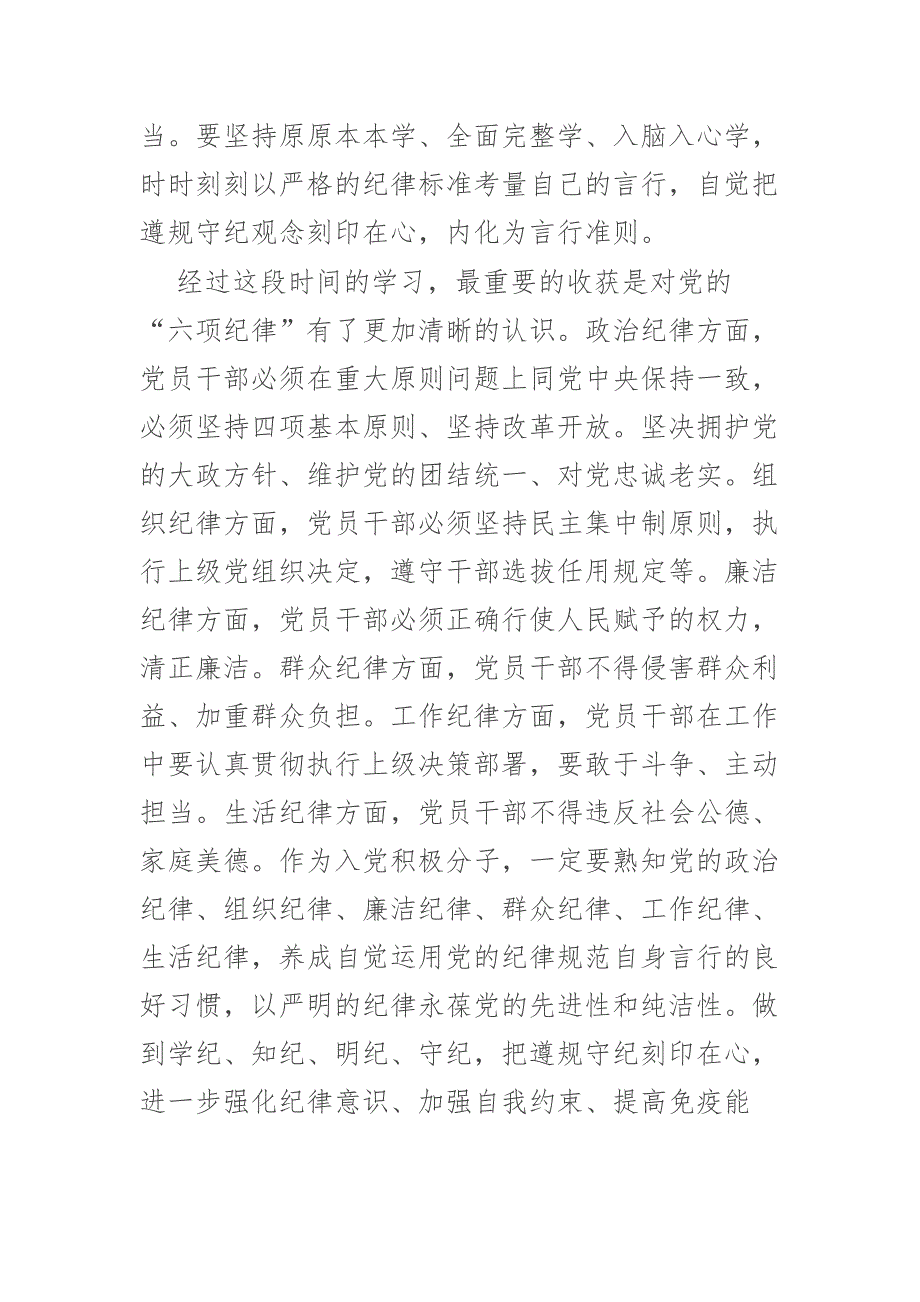 当。要坚持原原本本学、全面完整学、入脑入心学，
时时刻刻以严格的纪律标准考量自己的言行，自觉把
遵规守纪观念刻印在心，内化为言行准则。
经过这段时间的学习，最重要的收获是对党的
“六项纪律”有了更加清晰的认识。政治纪律方面，
党员干部必须在重大原则问题上同党中央保持一致，
必须坚持四项基本原则、坚持改革开放。坚决拥护党
的大政方针、维护党的团结统一、对党忠诚老实。组
织纪律方面，党员干部必须坚持民主集中制原则，执
行上级党组织决定，遵守干部选拔任用规定等。廉洁
纪律方面，党员干部必须正确行使人民赋予的权力，
清正廉洁。群众纪律方面，党员干部不得侵害群众利
益、加重群众负担。工作纪律方面，党员干部在工作
中要认真贯彻执行上级决策部署，要敢于斗争、主动
担当。生活纪律方面，党员干部不得违反社会公德、
家庭美德。作为入党积极分子，一定要熟知党的政治
纪律、组织纪律、廉洁纪律、群众纪律、工作纪律、
生活纪律，养成自觉运用党的纪律规范自身言行的良
好习惯，以严明的纪律永葆党的先进性和纯洁性。做
到学纪、知纪、明纪、守纪，把遵规守纪刻印在心，
进一步强化纪律意识、加强自我约束、提高免疫能